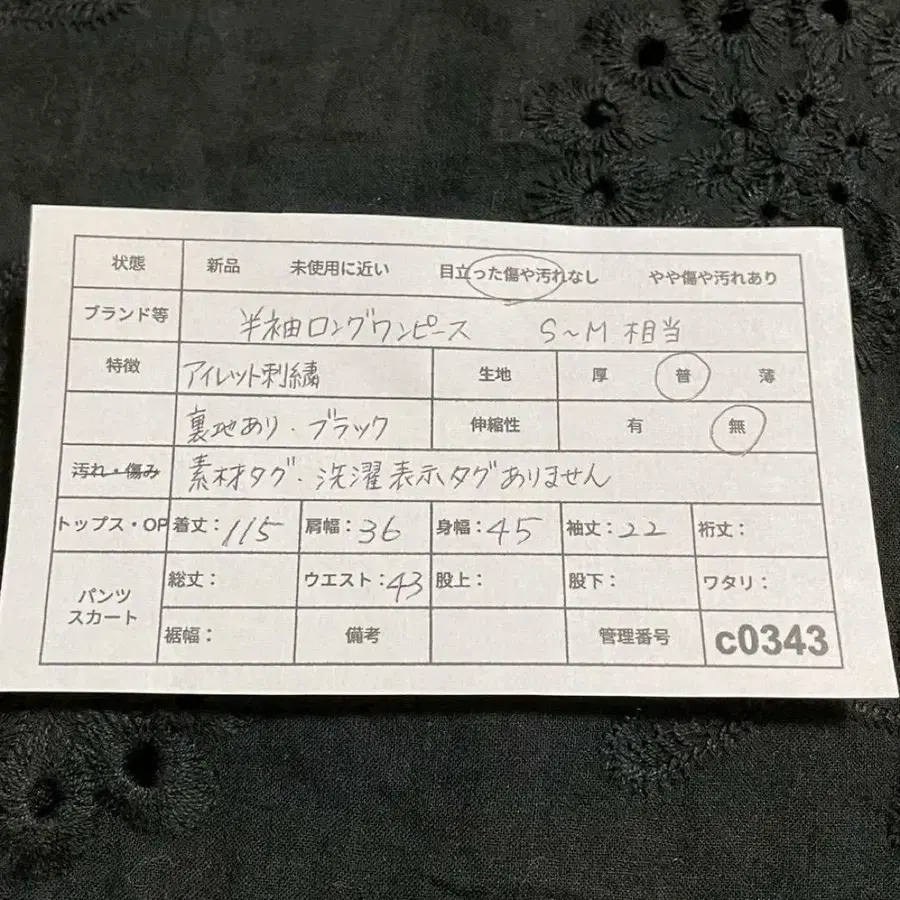 状態 新品 未使用に近い 目立った傷や汚れなし やや傷や汚れあり
ブランド等 半袖ロングワンピース S~M 相当
特徴 アイレット刺繍 生地 厚 普 薄
裏地あり・ブラック 伸縮性 有 無
汚れ・傷み 素材タグ・洗濯表示タグありません
トップス・OP 着丈:115 肩幅:36 身幅:45 袖丈:22 裄丈:
パンツ スカート 総丈: ウエスト:43 股上: 股下: ワタリ:
裾幅: 備考 管理番号 c0343